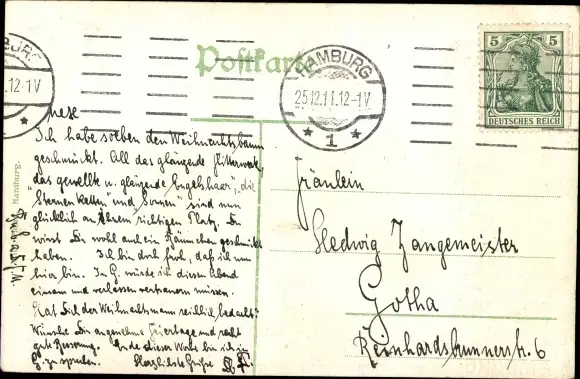 Postkarte
HAMBURG
25.12.11.12-1V.
* 1 *
5 5
DEUTSCHES REICH
.12-1V
Ich habe soeben den Weihnachtsbaum
geschmückt. All das glänzende Flitterwerk,
das gewellte u. glänzende Engelshaar", die
"Sternenketten" und Sonnen" sind nun
glücklich an ihrem richtigen Platz. Du
wirst Dir wohl auch ein Bäumchen geschmückt
haben. Ich bin doch froh, daß ich nun
hier bin. In G. müsste ich diesen Abend
einsam und verlassen vertrauern müssen.
Hat Dich der Weihnachtsmann reichlich bedacht?
Wünsche Dir angenehme Feiertage und recht
gute Besserung. Ende dieser Woche bin ich in
G. zu sprechen. Herzlichste Grüße
Hamburg.
Fräulein
Hedwig Zangemeister
Gotha
Reinhardsbrunnerstr. 6